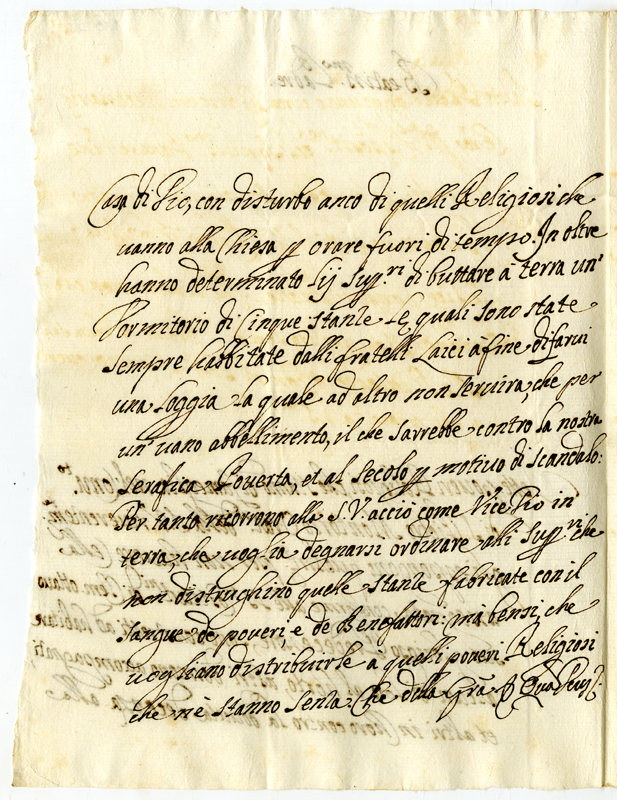 Casa di Dio, con disturbo anco di quelli Religiosi che
uanno alla Chiesa p orare fuori di tempo. In oltre
hanno determinato lij Supri di buttare à terra un'
Dormitorio di Cinque stanze Le quali sono state
sempre habbitate dalli fratelli Laici à fine di farui
una Loggia La quale ad altro non seruirà, che per
un uano abbellimento, il che sarrebbe contro la nostra
Serafica Pouertà, et al secolo p motiuo di scandalo:
Per tanto ricorrono alla S.V. acciò come Vice Dio in
terra, che uoglia degnarsi ordinare alli Supri che
non distrughino quelle stanze fabricate con il
sangue de poueri, e de Benefattori: mà bensi, che
uogliano distribuirle à quelli poueri Religiosi
che n'è stanno senza. Che della Grã Qua Deus